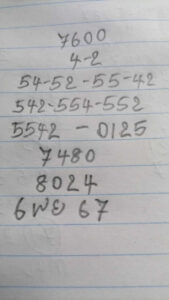 7600
4-2
54-52-55-42
542-554-552
5542 - 0125
7480
8024
6 พย 67